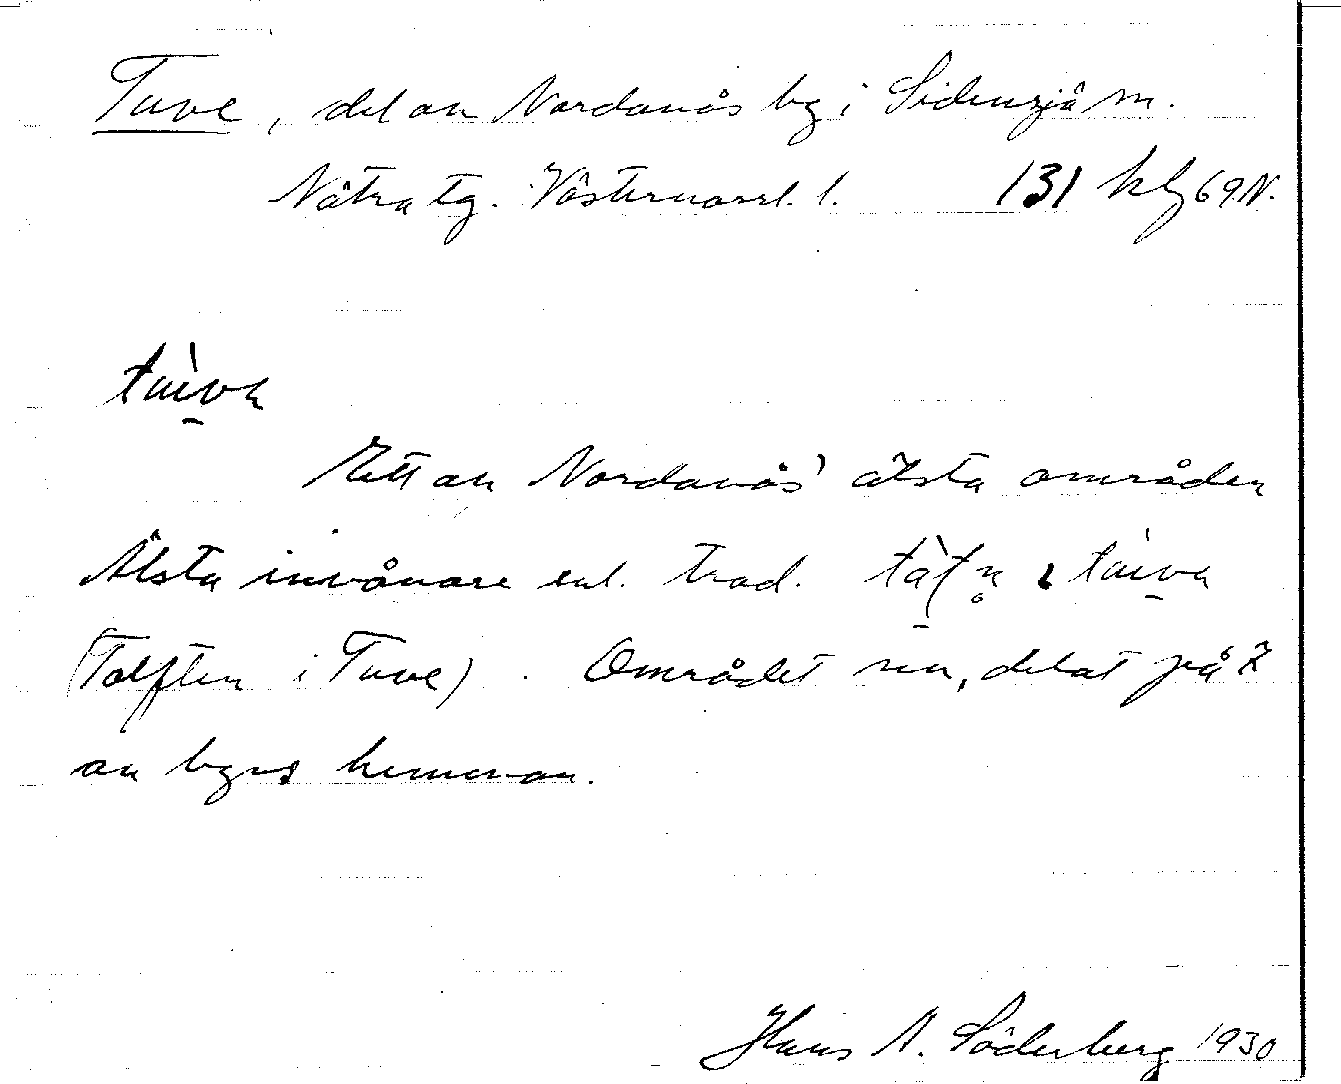 Tuve, del av Nordanås by i Sidensjö sn.
Nätra tg. Västernorrl. l. 131 kbl 69 N.
tùıvɐ
Ett av Nordanås' äldsta områden
Älsta invånare enl. trad. i tùıvɐ
(Tolften i Tuve). Området nu, delat på 2
av byns hemman.
Hans N. Söderberg 1930